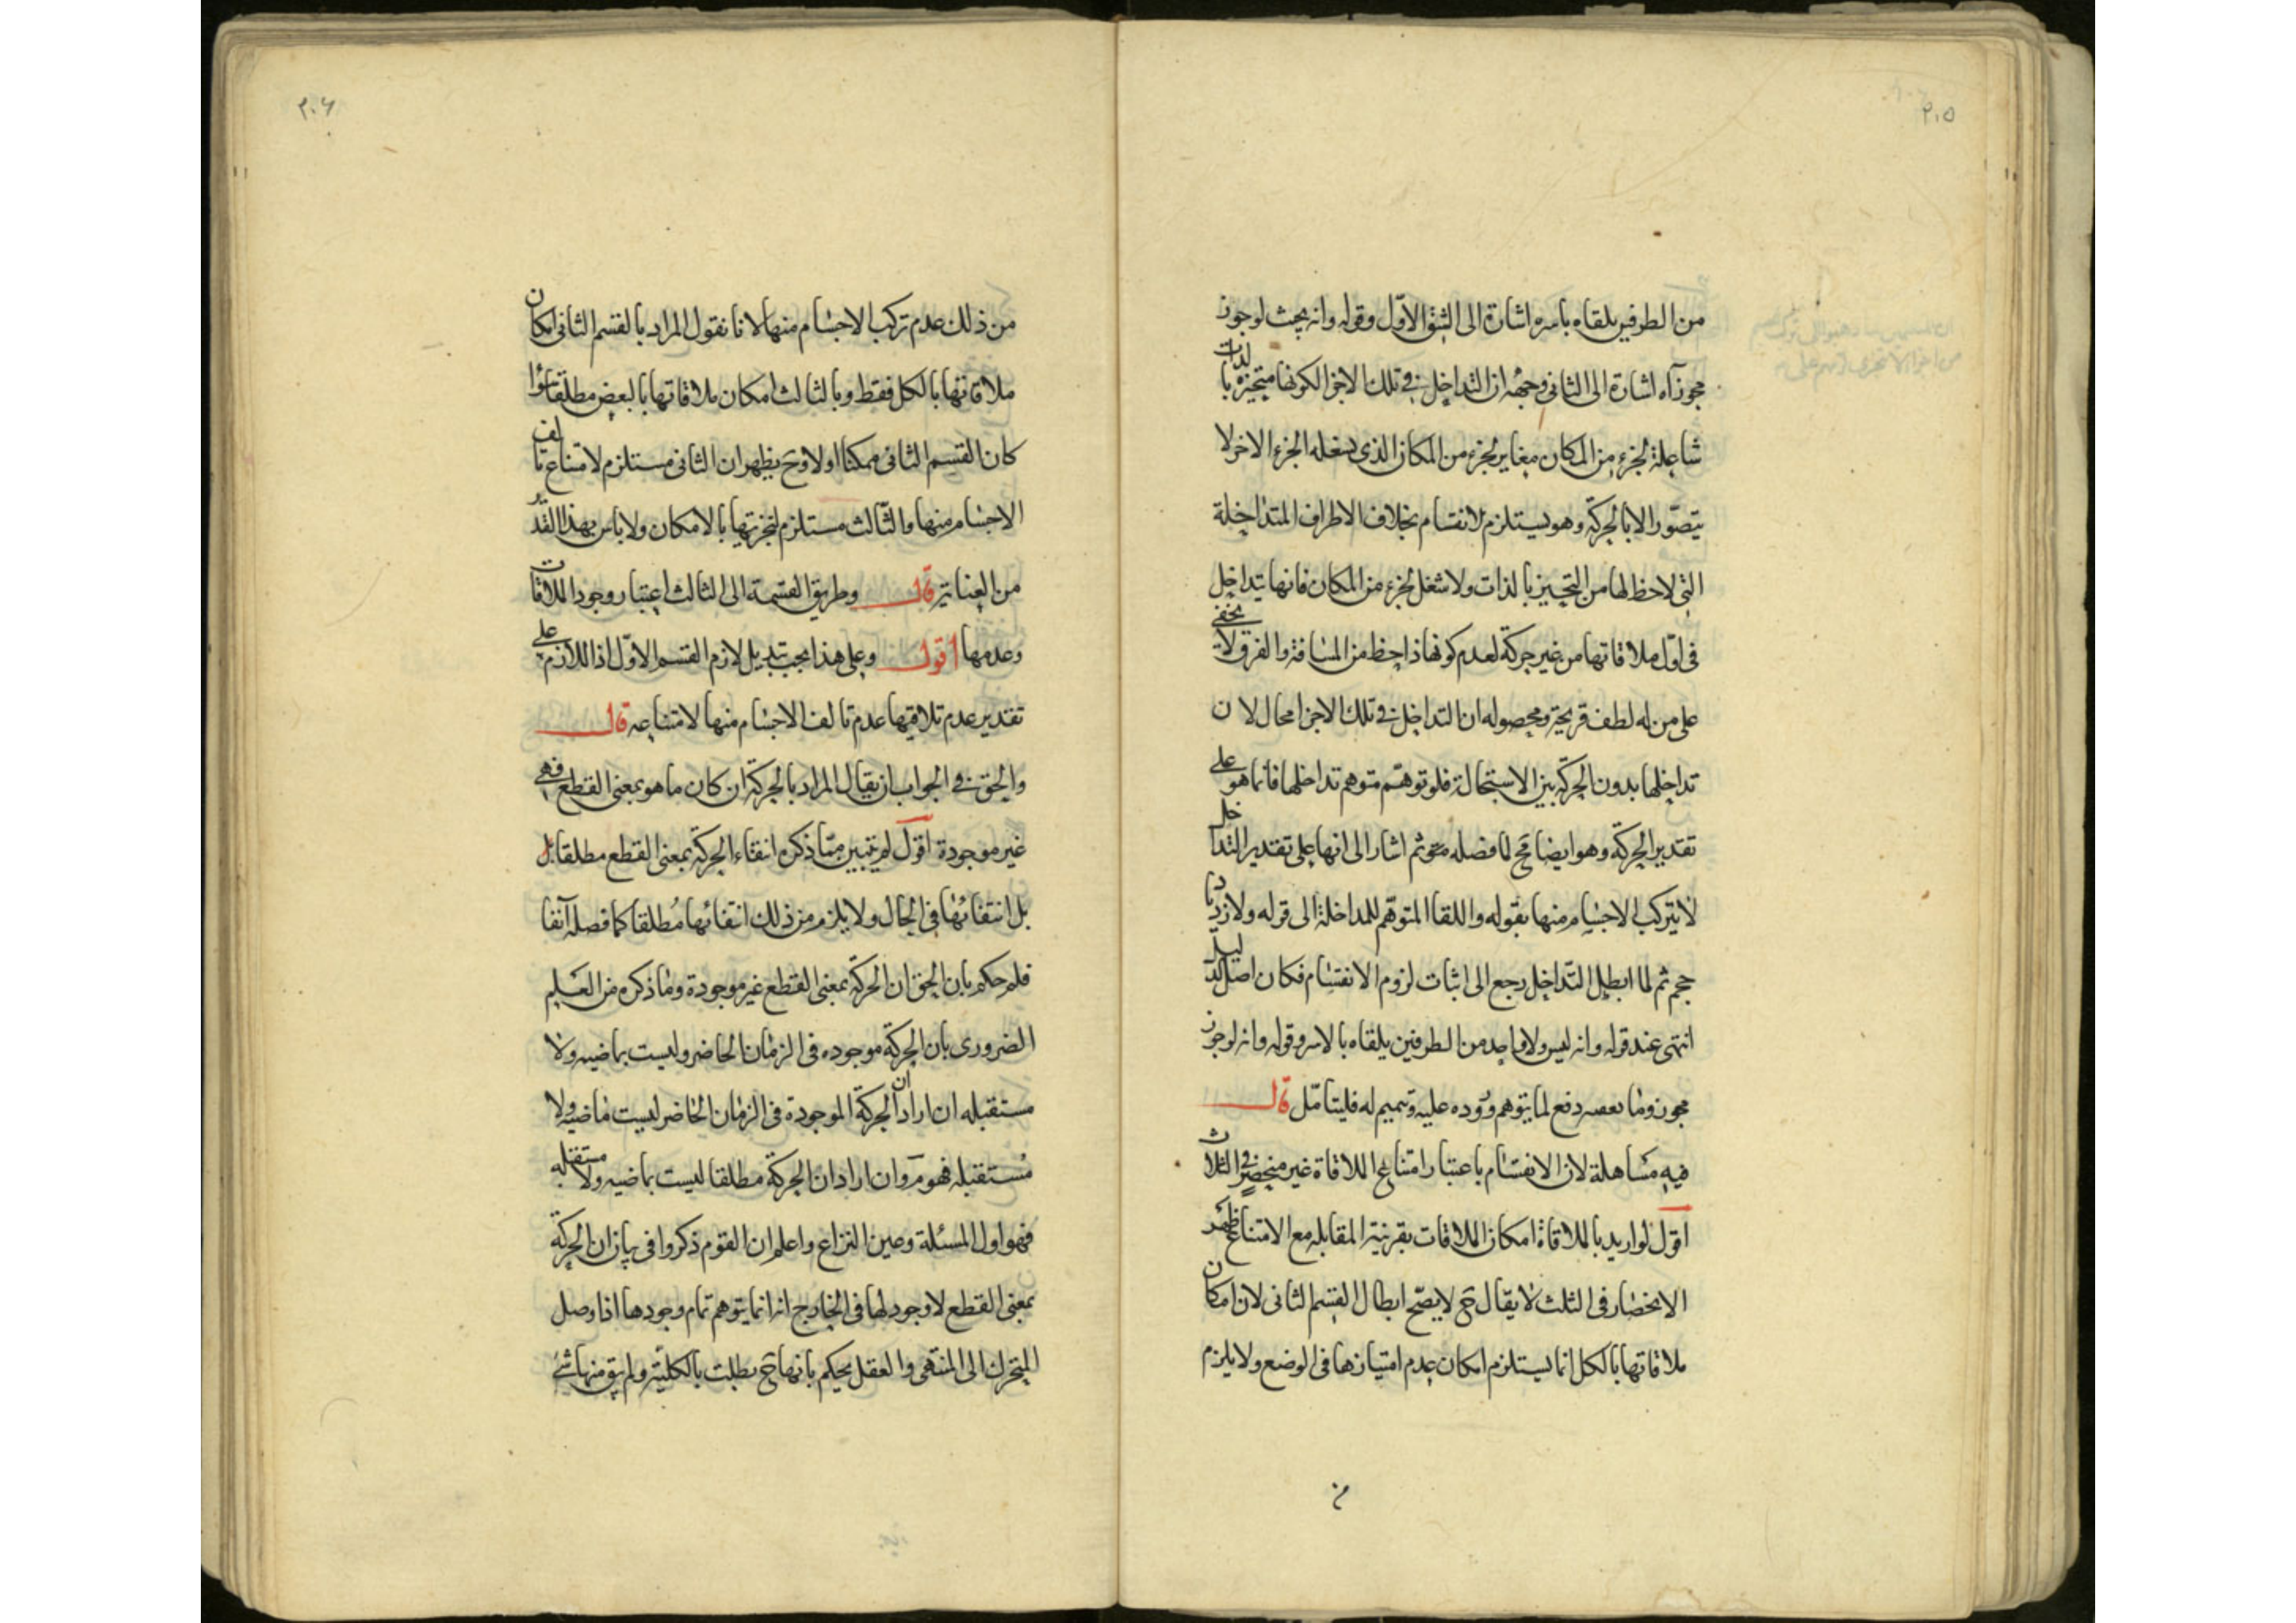 ٢٠٥
من الطرفين يلقاه باسره اشارة الى الشق الاوّل وقوله وانه بحيث لو جوز
مجوز آه اشارة الى الثانى وجهه ان التداخل فى تلك الاجزا لكونها متحيزة بالذات
شاغلة لجزء من المكان مغاير لجزء من المكان الذى يشغله الجزء الاخر لا
يتصّور الا بالحركة وهو يستلزم الانقسام بخلاف الاطراف المتداخلة
التى لاحظ لها من التحيز بالذات ولا شغل لجزء من المكان فانها يتداخل
فى اوّل ملاقاتها من غير حركة لعدم كونها ذا حظ من المسافة والفرق لا يخفى
على من له لطف قريحة ومحصوله ان التداخل فى تلك الاجزا محال لان
تداخلها بدون الحركة بين الاستحالة فلو توهّم متوهم تداخلها فانما هو على
تقدير الحركة وهو ايضا مح لما فصله ثم اشار الى انها على تقدير التداخل
لا يتركب الاجسام منها بقوله واللقاا المتوهّم للمداخلة الى قوله ولا زدياد
حجم ثم لما ابطل التّداخل رجع الى اثبات لزوم الانقسام فكان اصل الدليل
انتهى عند قوله وانه ليس ولا واحد من الطرفين يلقاه بالاسر وقوله وانه لو جوز
مجوز وما بعده دفع لما يتوهم وروده عليه وتتميم له فليتامّل قال
فيه مساهلة لان الانقسام باعتبار امتناع الملاقاة غير منحصر فى الثلاث
اقول لو اريد بالملاقاة امكان الملاقات بقرينة المقابله مع الامتناع ظهر
الانحصار فى الثلث لا يقال ح لا يصّح ابطال القسم الثانى لان امكان
ملاقاتها بالكل انما يستلزم امكان عدم امتيازها فى الوضع ولا يلزم
من
٢٠٦
من ذلك عدم تركب الاجسام منها لانا نقول المراد بالقسم الثانى امكان
ملاقاتها بالكل فقط وبالثالث امكان ملاقاتها بالبعض مطلقا سواء
كان القسم الثانى ممكنا اولا وح يظهر ان الثانى مستلزم لامتناع تالف
الاجسام منها والثّالث مستلزم لتجزيتها بالامكان ولا باس بهذا القدر
من العناية قال وطريق القسمة الى الثالث اعتبار وجود الملاقات
وعدمها اقول وعلى هذا يجب تبديل لازم القسم الاوّل اذا للازم على
تقدير عدم تلاقيها عدم تالف الاجسام منها لا امتناعه قال
والحق فى الجواب ان يقال المراد بالحركة ان كان ما هو بمعنى القطع فهى
غير موجودة اقول لم يتبين ممّا ذكره انتفاء الحركة بمعنى القطع مطلقا بل
بل انتفائها فى الحال ولا يلزم من ذلك انتفائها مُطلقا كما فصله آنفا
فلم حكم بان الحق ان الحركة بمعنى القطع غير موجودة وما ذكره من العلم
الضرورى بان الحركة موجوده فى الزمان الحاضر وليست بماضيه ولا
مستقبله ان اراد ان الحركة الموجودة فى الزمان الحاضر ليست ماضيه ولا
مُستقبله فهو م وان اراد ان الحركة مطلقا ليست بماضيه ولا مستقبله
فهو اول المسئلة وعين النزاع واعلم ان القوم ذكروا فى بيان ان الحركة
بمعنى القطع لا وجود لها فى الخارج انه انما يتوهم تمام وجودها اذا وصل
المتحرك الى المنتهى والعقل يحكم بانها ح بطلت بالكليّة ولم يبق منها شئ